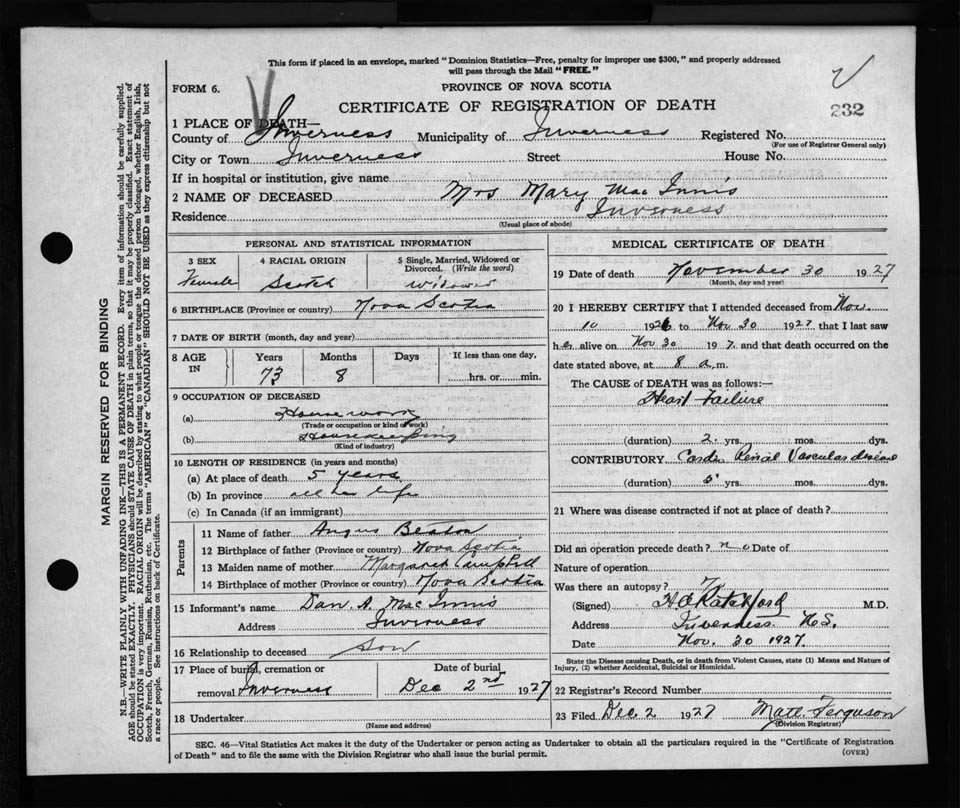 This form if placed in an envelope, marked "Dominion Statistics—Free, penalty for improper use $300," and properly addressed
will pass through the Mail "FREE."
FORM 6.
PROVINCE OF NOVA SCOTIA
CERTIFICATE OF REGISTRATION OF DEATH
232
1 PLACE OF DEATH—
County of Inverness Municipality of Inverness Registered No.
(For use of Registrar General only)
City or Town Inverness Street House No.
If in hospital or institution, give name
2 NAME OF DECEASED Mrs Mary Mac Innis
Residence Inverness
(Usual place of abode)
PERSONAL AND STATISTICAL INFORMATION
3 SEX 4 RACIAL ORIGIN 5 Single, Married, Widowed or Divorced. (Write the word)
Female Scotch Widowed
6 BIRTHPLACE (Province or country) Nova Scotia
7 DATE OF BIRTH (month, day and year)
8 AGE IN Years Months Days If less than one day,
73 8 hrs. or min.
9 OCCUPATION OF DECEASED
(a) Housework
(Trade or occupation or kind of work)
(b) Housekeeping
(Kind of industry)
10 LENGTH OF RESIDENCE (in years and months)
(a) At place of death 5 years
(b) In province all her life
(c) In Canada (if an immigrant)
Parents
11 Name of father Angus Beaton
12 Birthplace of father (Province or country) Nova Scotia
13 Maiden name of mother Margaret Campbell
14 Birthplace of mother (Province or country) Nova Scotia
15 Informant's name Dan. A. Mac Innis
Address Inverness
16 Relationship to deceased Son
17 Place of burial, cremation or Date of burial
removal Inverness Dec 2nd 1927
18 Undertaker
(Name and address)
MEDICAL CERTIFICATE OF DEATH
19 Date of death November 30 1927
(Month, day and year)
20 I HEREBY CERTIFY that I attended deceased from Nov.
10 1926 to Nov 30 1927 that I last saw
her alive on Nov 30 1927. and that death occurred on the
date stated above, at 8 a.m.
The CAUSE of DEATH was as follows:—
Heart Failure
(duration) 2 yrs. mos. dys.
CONTRIBUTORY Cardio Renal Vascular disease
(duration) 5 yrs. mos. dys.
21 Where was disease contracted if not at place of death?
Did an operation precede death? no Date of
Nature of operation
Was there an autopsy? No
(Signed) H.A. Ratchford M.D.
Address Inverness. N.S.
Date Nov. 30 1927.
State the Disease causing Death, or in death from Violent Causes, state (1) Means and Nature of
Injury, (2) whether Accidental, Suicidal or Homicidal.
22 Registrar's Record Number
23 Filed Dec. 2 1927 Matt. Ferguson
(Division Registrar)
SEC. 46—Vital Statistics Act makes it the duty of the Undertaker or person acting as Undertaker to obtain all the particulars required in the "Certificate of Registration
of Death" and to file the same with the Division Registrar who shall issue the burial permit.
(OVER)
MARGIN RESERVED FOR BINDING
N.B.—WRITE PLAINLY WITH UNFADING INK—THIS IS A PERMANENT RECORD. Every item of information should be carefully supplied.
AGE should be stated EXACTLY. PHYSICIANS should STATE CAUSE OF DEATH in plain terms, so that it may be properly classified. Exact statement of
OCCUPATION is very important. RACIAL ORIGIN will be described by stating to what people or tongue the deceased person belonged, whether English, Irish,
Scotch, French, German, Russian, Ruthenian, etc. The terms "AMERICAN" or "CANADIAN" SHOULD NOT BE USED as they express citizenship but not
a race or people. See instructions on back of Certificate.